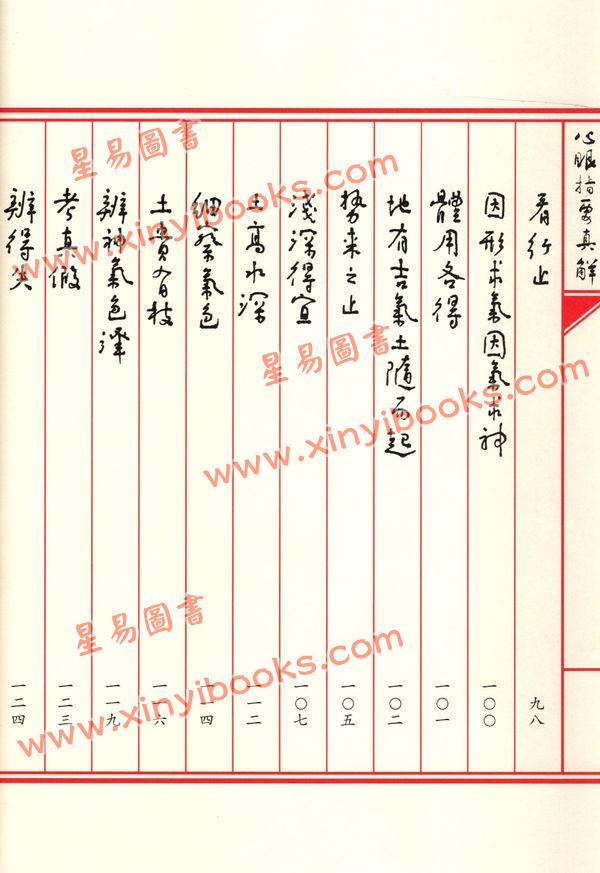 心眼指要真解
看行止 九八
因形求氣因氣求神 一〇〇
體用各得 一〇一
地有吉氣土隨而起 一〇二
勢來之止 一〇五
淺深得宜 一〇七
土高水深 一一二
細察氣色 一一四
土貴有枝 一一六
辨神氣色澤 一一九
考真假 一二三
辨得失 一二四
星易圖書
www.xinyibooks.com
星易圖書
www.xinyibooks.com
星易圖書
www.xinyibooks.com